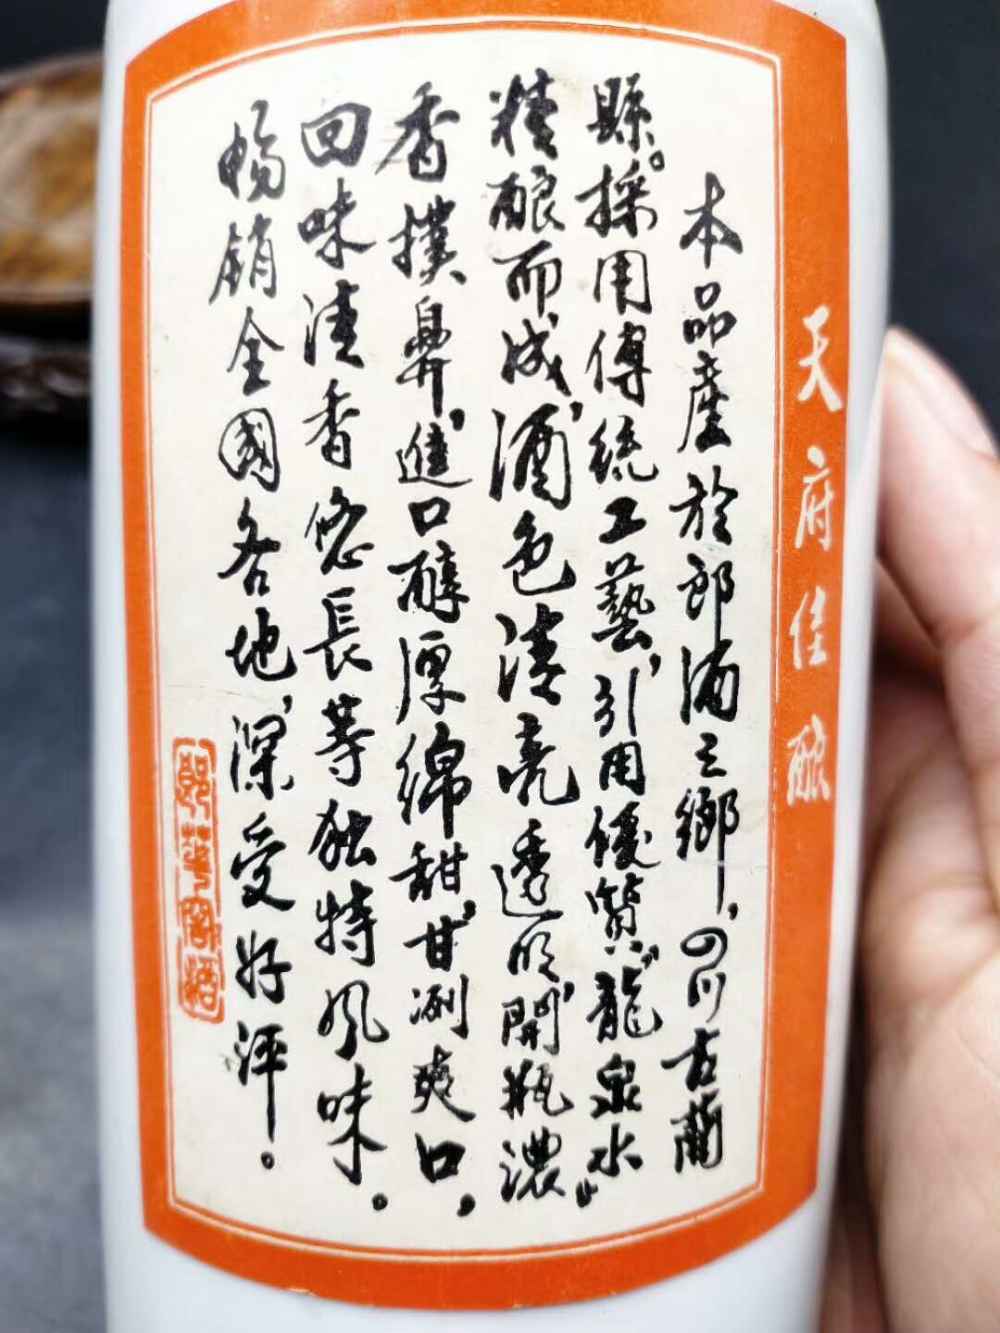 天府佳酿
本品產於郎酒之鄉，四川古藺
縣。採用傳統工藝，引用優質“龍泉水”
精酿而成，酒色清亮透明，開瓶濃
香撲鼻，進口醇厚綿甜，甘洌爽口，
回味清香悠長等独特風味。
暢銷全國各地，深受好評。